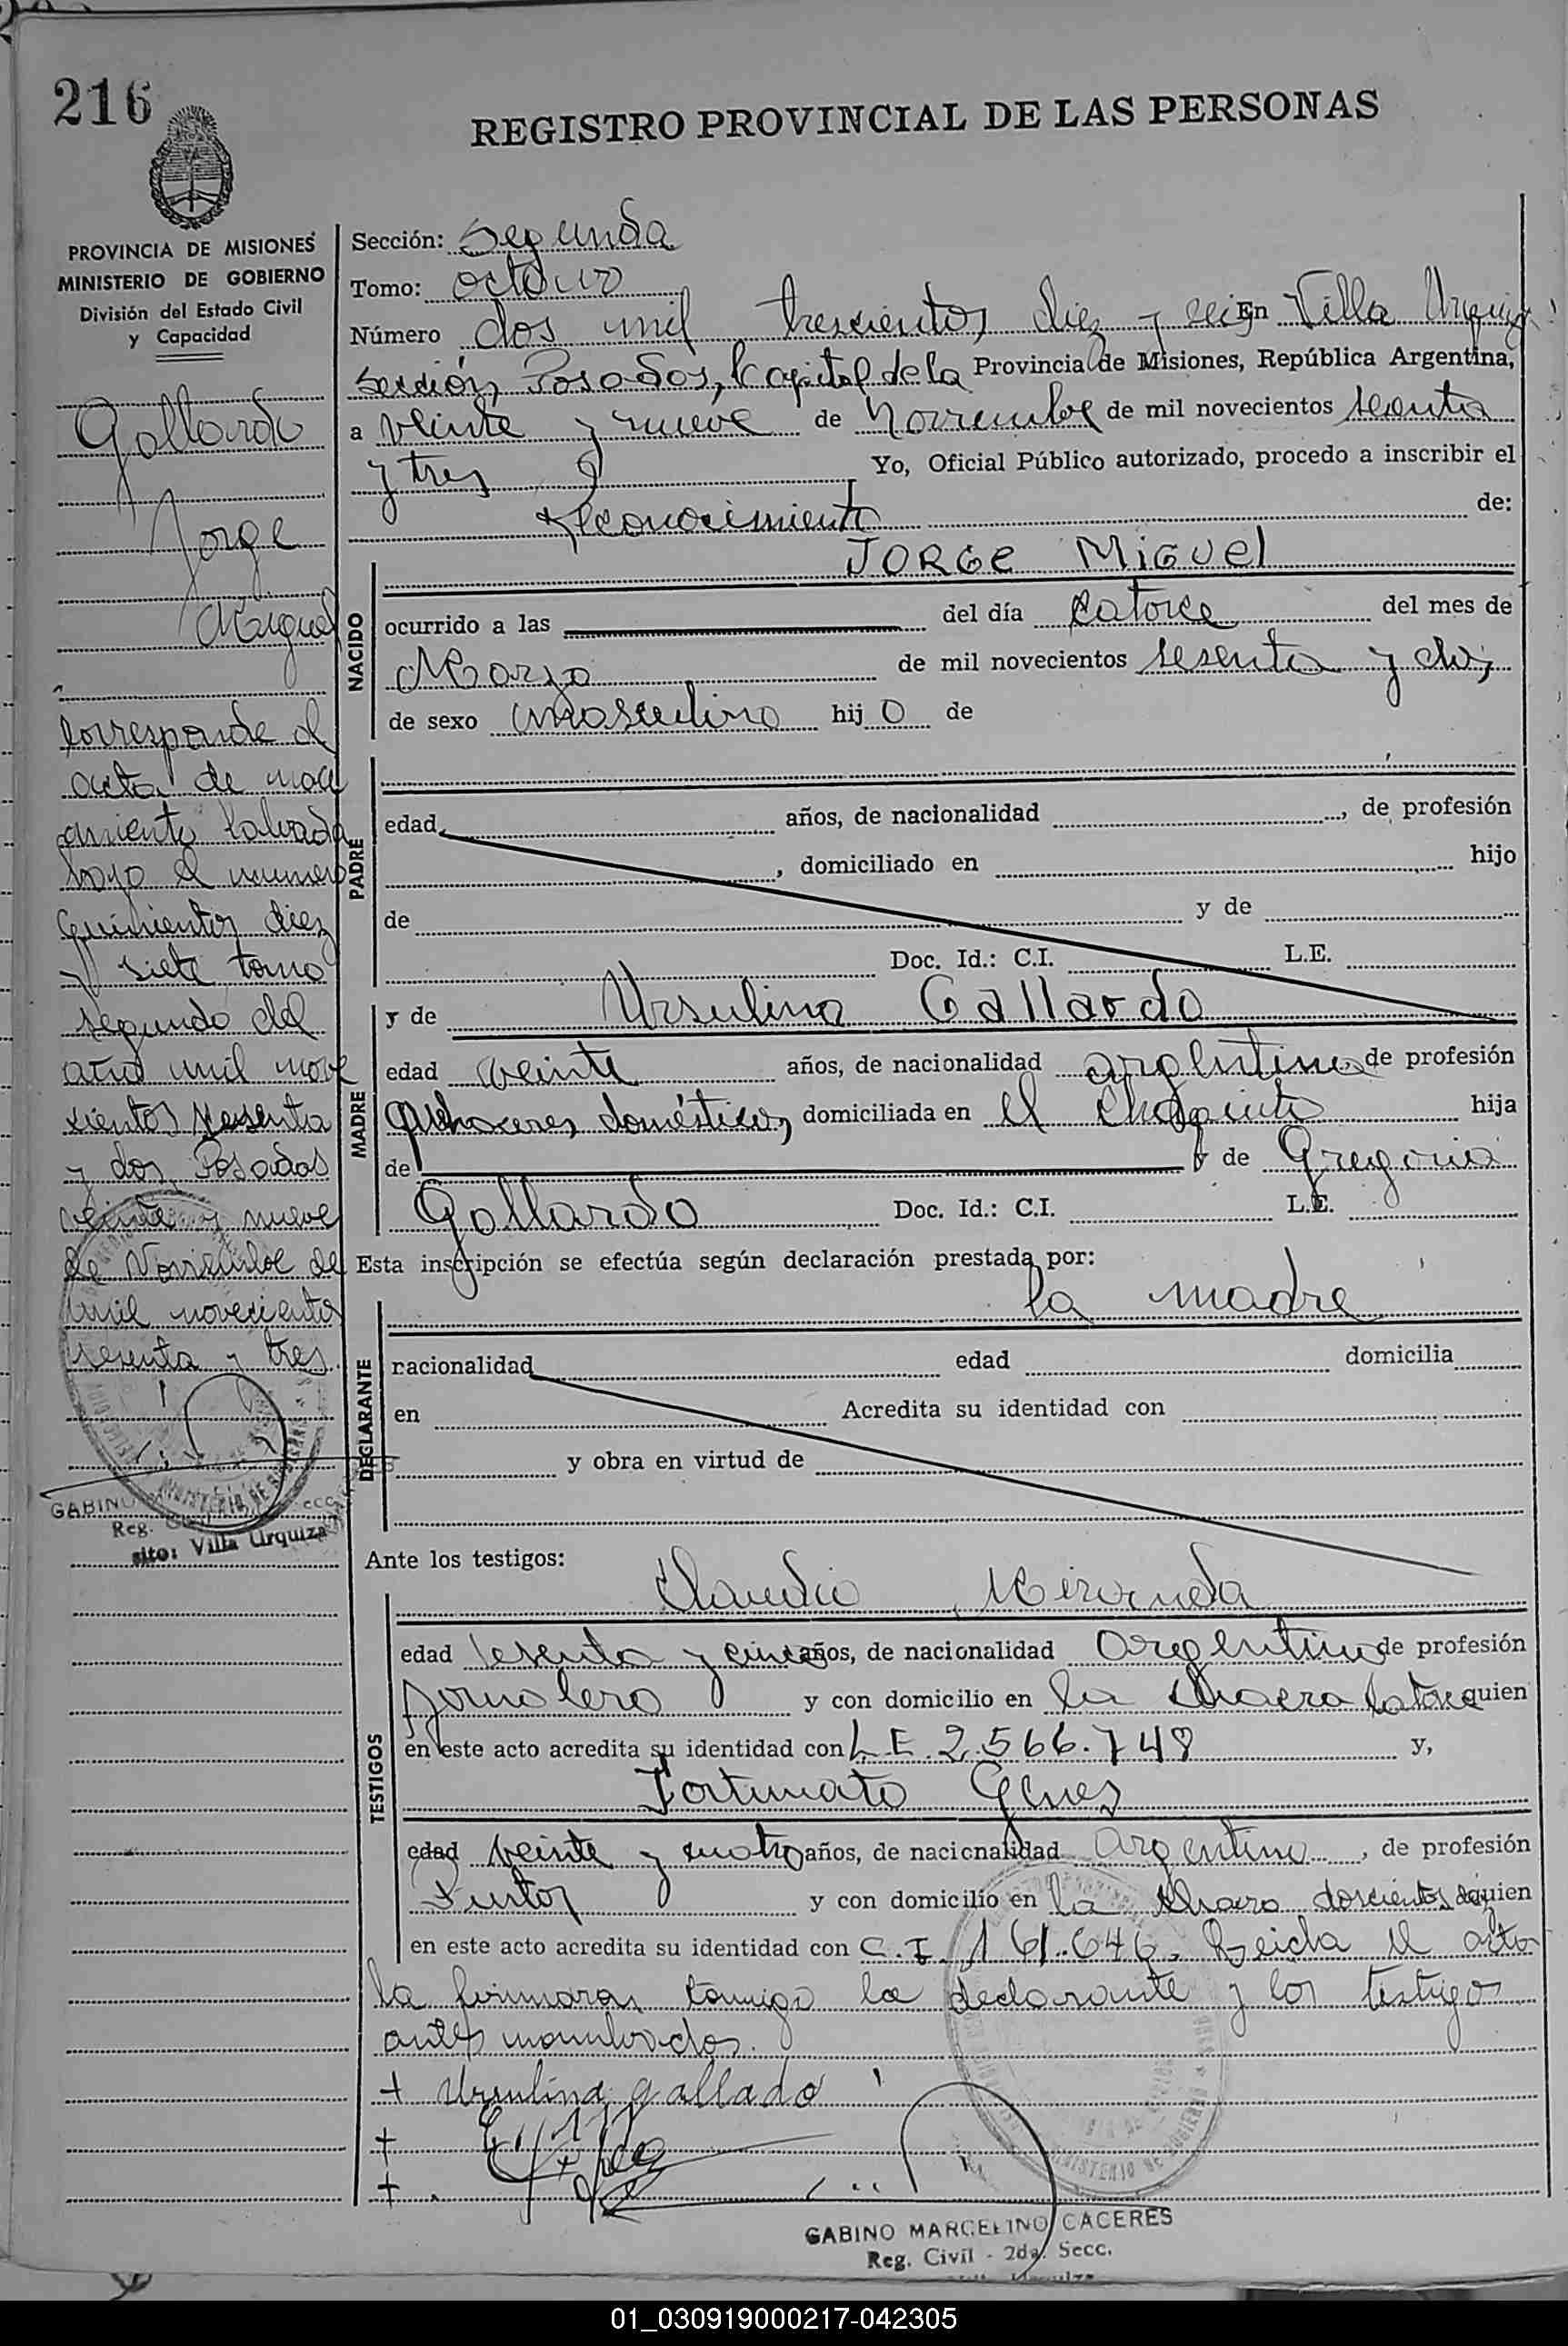 216
REGISTRO PROVINCIAL DE LAS PERSONAS
PROVINCIA DE MISIONES
MINISTERIO DE GOBIERNO
División del Estado Civil
y Capacidad
Gallardo
Jorge
Miguel
Corresponde al
acta de naci
miento labrada
bajo el numero
quinientos diez
y siete tomo
segundo del
año mil nove
cientos sesenta
y dos Posadas
veinte y nueve
de Noviembre de
mil novecientos
sesenta y tres.
GABINO
Reg.
sito: Villa Urquiza
Sección: Segunda
Tomo: octavo
Número dos mil trescientos diez y seis En Villa Urquiza
sección, Posadas, Capital de la Provincia de Misiones, República Argentina,
a veinte y nueve de Noviembre de mil novecientos sesenta
y tres Yo, Oficial Público autorizado, procedo a inscribir el
reconocimiento de:
NACIDO
JORGE MIGUEL
ocurrido a las del día catorce del mes de
Marzo de mil novecientos sesenta y dos
de sexo masculino hijo de
PADRE
edad años, de nacionalidad , de profesión
, domiciliado en hijo
de y de
Doc. Id.: C.I. L.E.
MADRE
y de Ursulina Gallardo
edad veinte años, de nacionalidad argentina de profesión
quehaceres domésticos, domiciliada en el Chaquito hija
de y de Gregoria
Gallardo Doc. Id.: C.I. L.E.
Esta inscripción se efectúa según declaración prestada por:
la madre
DECLARANTE
racionalidad edad domicilia
en Acredita su identidad con
y obra en virtud de
Ante los testigos:
TESTIGOS
Claudio Miranda
edad sesenta y cinco años, de nacionalidad Argentino de profesión
jornalero y con domicilio en la Chacra catorce quien
en este acto acredita su identidad con L.E. 2.566.748 y,
Fortunato
edad veinte y cuatro años, de nacicnalidad Argentino , de profesión
Pintor y con domicilio en la Chacra doscientos quien
en este acto acredita su identidad con C.I. 161.646. Leida el acta
la firmaron conmigo la declarante y los testigos
antes nombrados.
+ Ursulina gallado
+
+
GABINO MARCELINO CACERES
Reg. Civil - 2da. Secc.
01_030919000217-042305